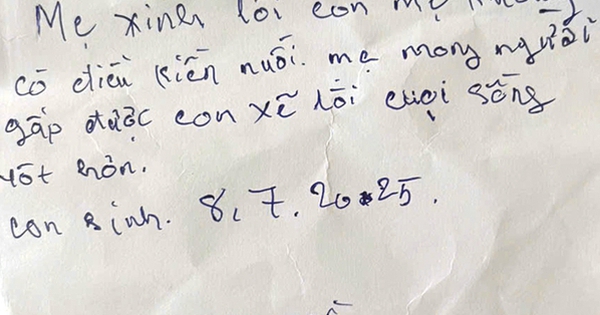 Mẹ xinh lỗi con mẹ không
có điều kiến nuối. mẹ mong người
gấp được con xẽ lối cuọi sống
tốt hơn.
con sinh. 8.7.2025.